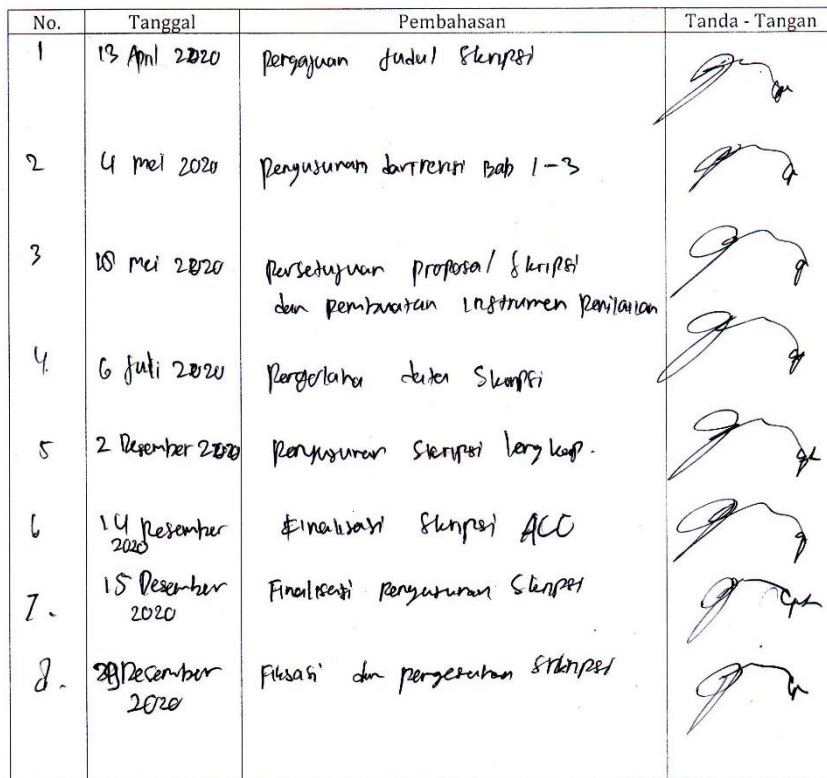 No. Tanggal Pembahasan Tanda - Tangan
1 13 April 2020 Pengajuan Judul Skripsi
2 4 mei 2020 Penyusunan dan revisi Bab 1-3
3 18 mei 2020 Persetujuan proposal skripsi
dan pembuatan instrumen Penilaian
4. 6 Juli 2020 Pengolaha data Skripsi
5 2 Desember 2020 Penyusunan Skripsi lengkap.
6 14 Desember Finalisasi Skripsi ACC
2020
7. 15 Desember Finalisasi Penyusunan Skripsi
2020
8. 29 Desember Fiksasi dan pengesahan Skripsi
2020